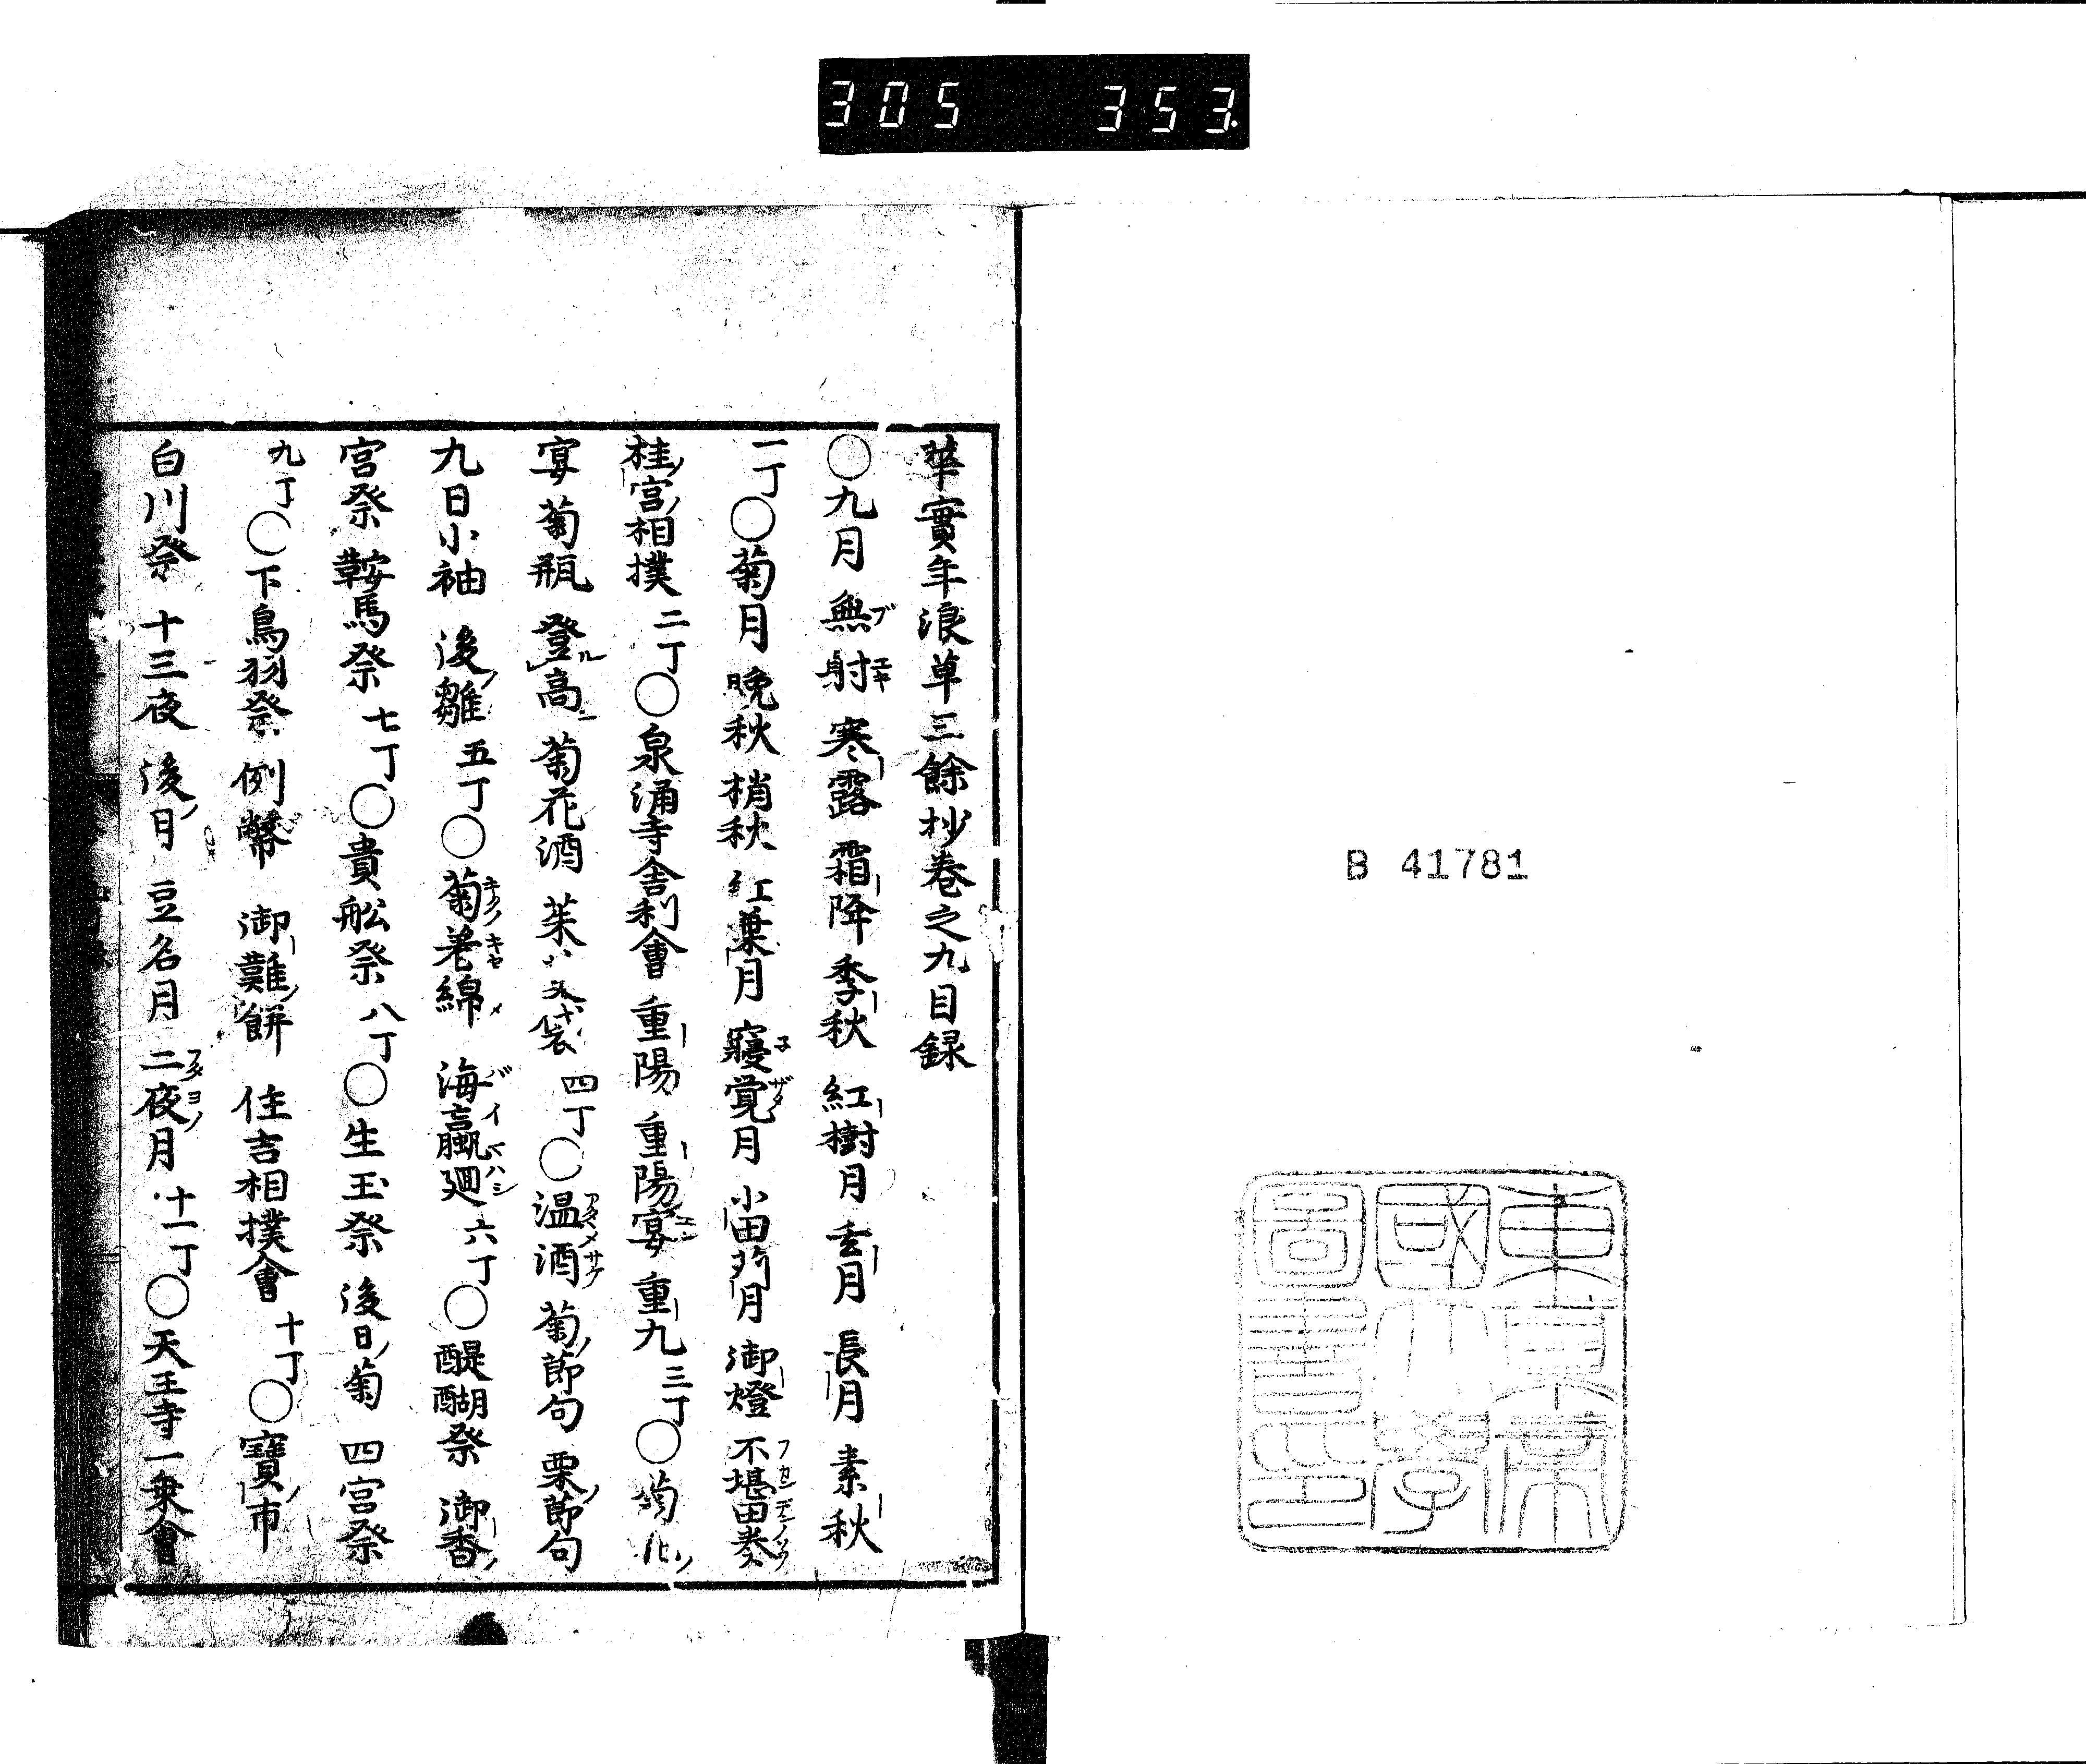 305 353
B 41781
華實年浪草三餘抄巻之九目録
〇九月 無射 寒露 霜降 季秋 紅樹月 玄月 長月 素秋
一丁〇菊月 晩秋 梢秋 紅葉月 寢覚月 小田苅月 御燈 不堪田奏
桂宮相撲 二丁〇泉涌寺舎利會 重陽 重陽宴 重九 三丁〇菊花
宴 菊瓶 登高 菊花酒 茱 袋 四丁〇温酒 菊節句 栗節句
九日小袖 後雛 五丁〇菊着綿 海蠃廻 六丁〇醍醐祭 御香
宮祭 鞍馬祭 七丁〇貴舩祭 八丁〇生玉祭 後日菊 四宮祭
九丁〇下鳥羽祭 例幣 御難餅 住吉相撲會 十丁〇寶市
白川祭 十三夜 後月 豆名月 二夜月 十一丁〇天王寺一乗會